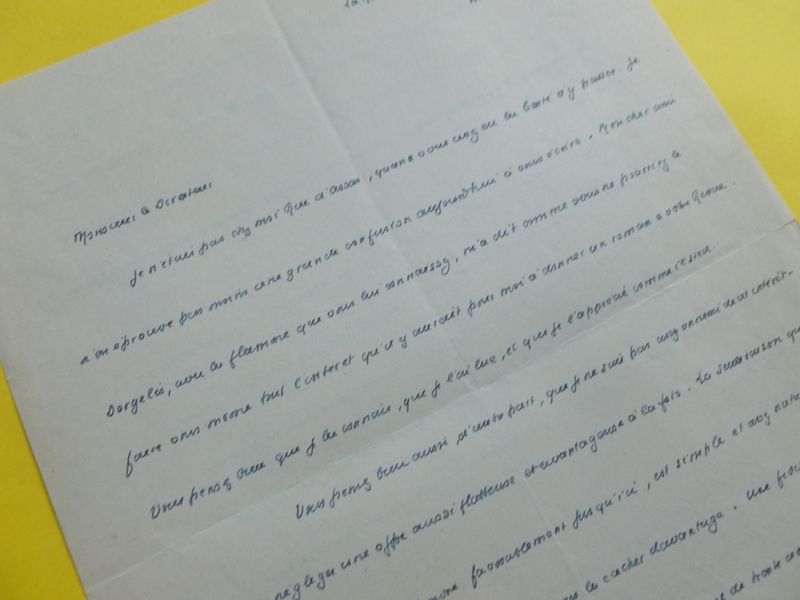 Monsieur le Directeur
Je n'étais pas chez moi que d'assas, quand vous avez eu la bonté d'y passer. Je
n'en éprouve pas moins une grande confusion aujourd'hui à vous écrire. Mon cher ami
Dorgelès, avec la flamme que vous lui connaissez, m'a dit comme vous ne pourriez le
faire vous même tout l'intérêt qu'il y aurait pour moi à donner un roman à votre Revue.
Vous pensez bien que je la connais, que je l'ai lue, et que je l'apprécie
Vous pensez bien aussi d'autre part, que je ne suis pas assez ennemi de
négliger une offre aussi flatteuse et avantageuse à la fois. La
jusqu'ici, est simple et assez
le cacher davantage. Une
de trente